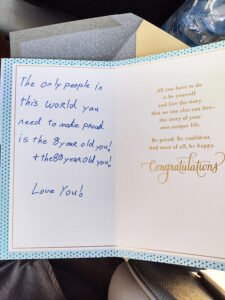 The only people in
this world you
need to make proud
is the 8 year old you!
+ the 80 year old you!
Love You!
All you have to do
is be yourself
and live the story
that no one else can live—
the story of your
own unique life.
Be proud. Be confident.
And most of all, be happy.
Congratulations